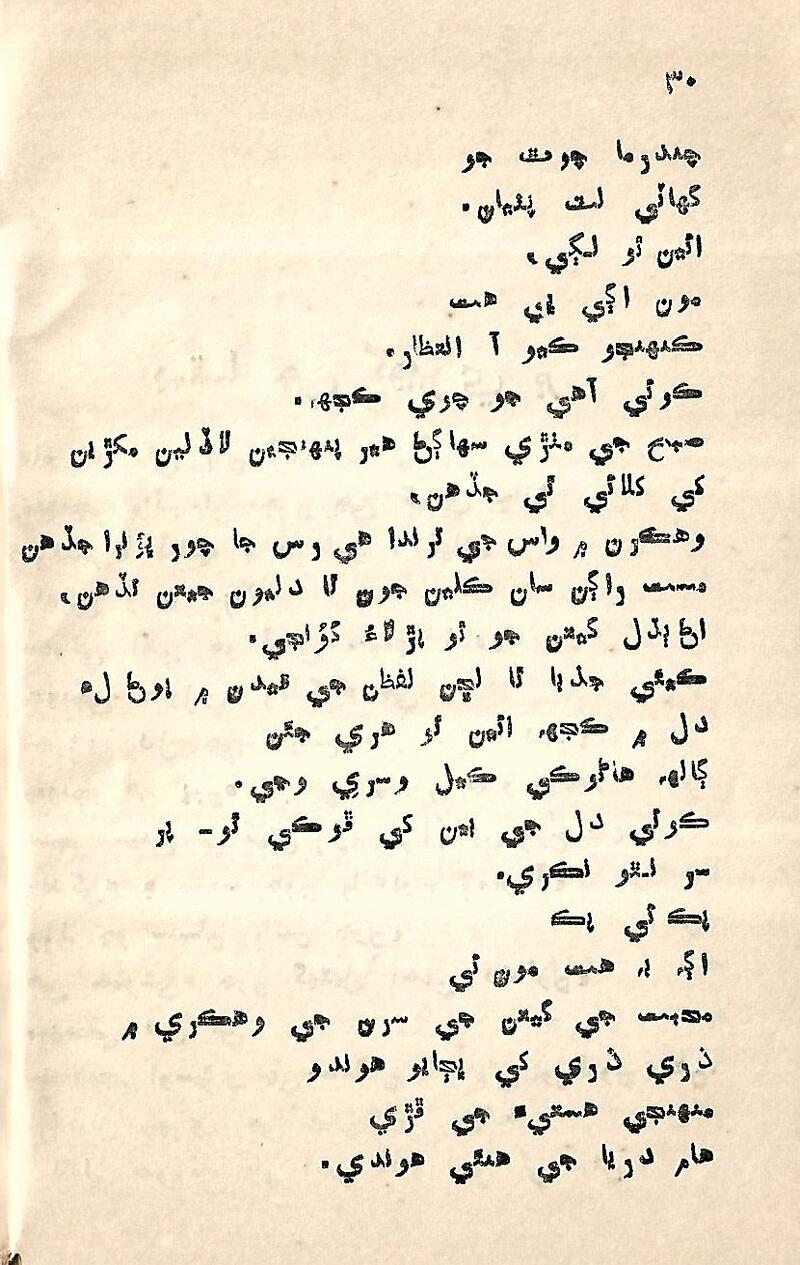 ٣٠
چندرما چوٿ جو
گهاٽي لٽ پٺيان.
ائين ٿو لڳي،
مون اڳي ڀي هت
ڪنهنجو ڪيو آ انتظار.
ڪوئي آهي جو چوري ڪجهه.
صبح جي مٺڙي سهاڳڻ هير پنهنجين لاڏلين مکڙين
کي کلائي ٿي جڏهن،
وهڪرن ۾ واس جي ترندا هي رس جا چور ڀؤنرا جڏهن
مست راڳن سان ڪلين جون ٿا دليون جيتن تڏهن،
اڻ ٻڌل گيتن جو ٿو پڙلاءُ گونجي.
ڪيئي جذبا ٿا لڇن لفظن جي قيدن ۾ اچڻ لاءِ
دل ۾ ڪجهه ائين ٿو هري جئن
ڳالهه هاڻوڪي ڪيل وسري وڃي.
ڪوئي دل جي بين کي ڦوڪي ٿو- پر
سر نٿو نڪري.
ٻڪ ئي ٻڪ
اڳ ۾ هت مون ئي
محبت جي گيتن جي سرن جي وهڪري ۾
ذري ذري کي ڀڄايو هوندو
منهنجي هستيءَ جي ڦڙي
هام دريا جي هنئي هوندي.